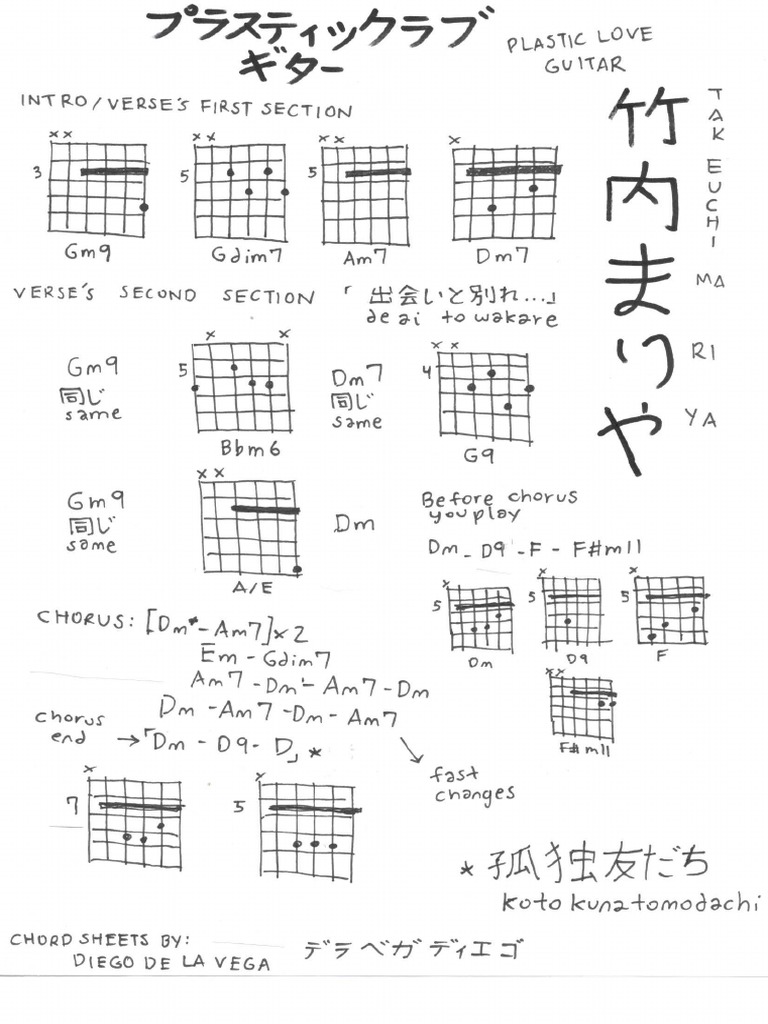 プラスティックラブ
ギター
PLASTIC LOVE
GUITAR
竹内まりや
TAKEUCHI
MA
RI
YA
INTRO/VERSE'S FIRST SECTION
x x
3
Gm9
x x
5
Gdim7
x x
5
Am7
x
Dm7
VERSE'S SECOND SECTION 「出会いと別れ...」
deai to wakare
Gm9
同じ
same
x x
5
Bbm6
Dm7
同じ
same
x x
4
G9
Gm9
同じ
same
x x
A/E
Dm
Before chorus
you play
Dm - D9 - F - F#m11
x
5
Dm
x
5
D9
x
5
F
x x
F#m11
CHORUS: [Dm* - Am7] x 2
Em - Gdim7
Am7 - Dm - Am7 - Dm
Dm - Am7 - Dm - Am7
chorus
end →「Dm - D9 - D」*
fast
changes
x
7
x
5
* 孤独友だち
kotokunatomodachi
CHORD SHEETS BY:
DIEGO DE LA VEGA
デラベガディエゴ